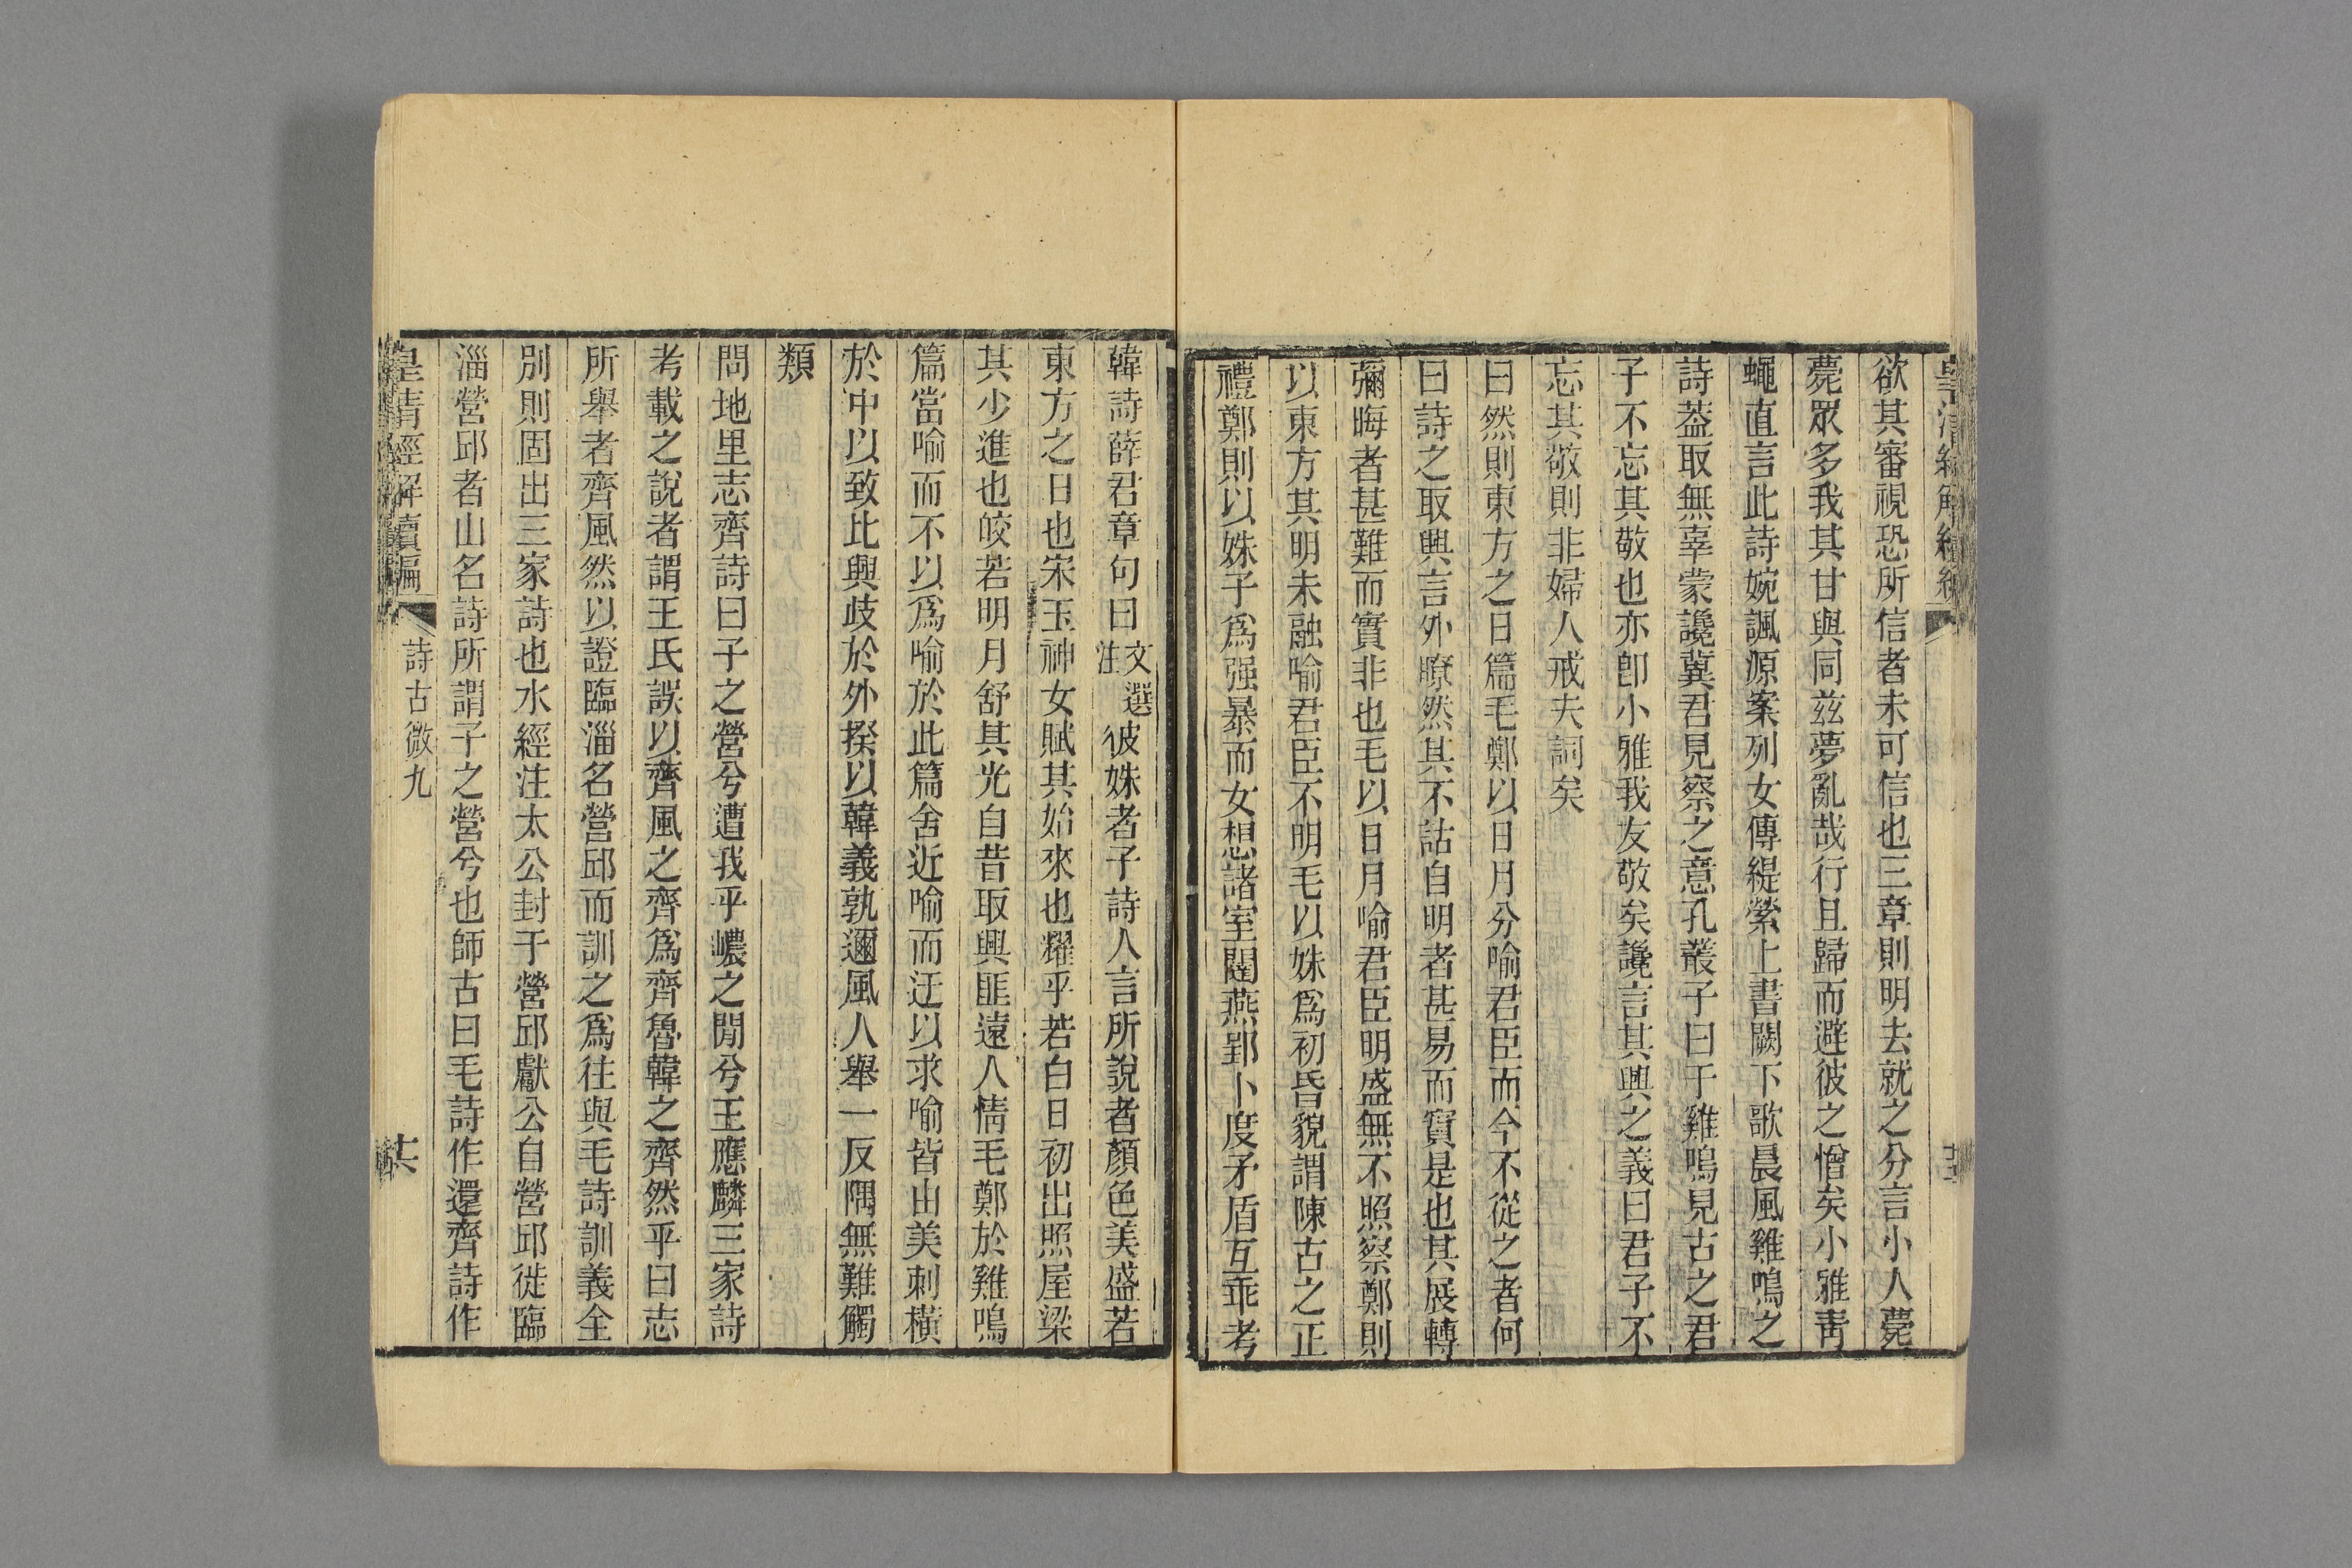 欲其審視恐所信者未可信也三章則明去就之分言小人薨
薨眾多我其甘與同兹夢亂哉行且歸而避彼之憎矣小雅靑
蠅直言此詩婉諷源案列女傳緹縈上書闕下歌晨風雞鳴之
詩葢取無辜蒙讒冀君見察之意孔叢子曰于雞鳴見古之君
子不忘其敬也亦卽小雅我友敬矣讒言其興之義曰君子不
忘其敬則非婦人戒夫詞矣
曰然則東方之日篇毛鄭以日月分喻君臣而今不從之者何
曰詩之取興言外瞭然其不詁自明者甚易而實是也其展轉
彌晦者甚難而實非也毛以日月喻君臣明盛無不照察鄭則
以東方其明未融喻君臣不明毛以姝爲初昏貌謂陳古之正
禮鄭則以姝子爲强暴而女想諸室闥燕郢卜度矛盾互乖考
韓詩薛君章句曰文選注彼姝者子詩人言所說者顏色美盛若
東方之日也宋玉神女賦其始來也耀乎若白日初出照屋梁
其少進也皎若明月舒其光自昔取興匪遠人情毛鄭於雞鳴
篇當喻而不以爲喻於此篇舍近喻而迂以求喻皆由美刺橫
於中以致比興歧於外揆以韓義孰邇風人舉一反隅無難觸
類
問地里志齊詩曰子之營兮遭我乎巎之閒兮王應麟三家詩
考載之說者謂王氏誤以齊風之齊爲齊魯韓之齊然乎曰志
所舉者齊風然以證臨淄名營邱而訓之爲往與毛詩訓義全
別則固出三家詩也水經注太公封于營邱獻公自營邱徙臨
淄營邱者山名詩所謂子之營兮也師古曰毛詩作還齊詩作
皇淸經解續編
詩古微九